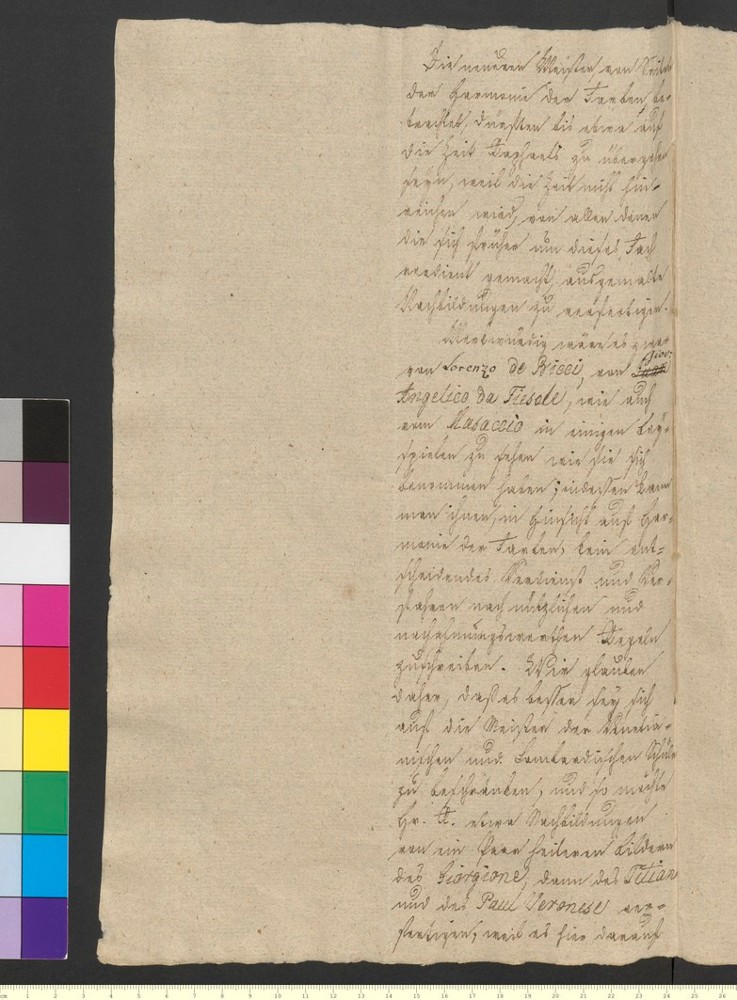 Die neuern Meister, von Seiten
der Harmonie der Farben, be-
trachtet, dürften bis etwa auf
die Zeit Raphaels zu übergehen
seyn, weil die Zeit nicht hin-
reichen wird, von allen denen
die sich früher um dieses Fach
verdient gemacht, ausgemalte
Nachbildungen zu verfertigen.
Merkwürdig wäre es zwar
von Lorenzo de Bicci, von Giov:
Angelico da Fiesole, wie auch
vom Masaccio in einigen Bey-
spielen zu sehen wie sie sich
benommen haben; indessen kann
man ihnen, in Hinsicht auf Har-
monie der Farben, kein ent-
scheidendes Verdienst und Ver-
fahren nach nützlichen und
nachahmungswerthen Regeln
zuschreiben. Wir glauben
daher, daß es besser sey sich
auf die Meister der Venetia-
nischen und Lombardischen Schule
zu beschränken, und so möchte
Hr. R. etwa Nachbildungen
von ein Paar heiteren Bildern
des Giorgione, dann des Titian
und des Paul Veronese ver-
fertigen, weil es hier darauf